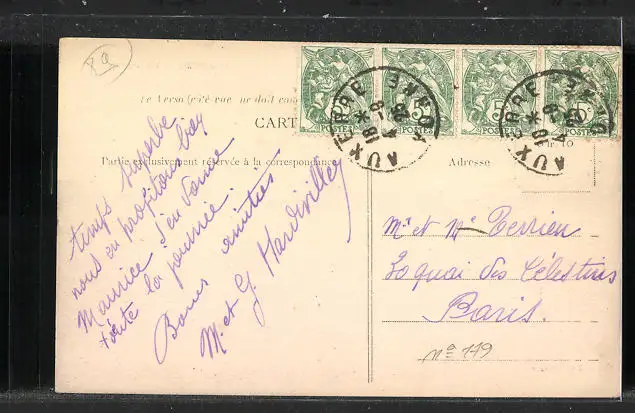 Le Verso (côté vue) ne doit
CART
Partie exclusivement réservée à la correspondance
Adresse
5
5
5
5
POSTES
POSTES
POSTES
POSTES
AUXERRE
YONNE
AUXERRE
YONNE
temps superbe
nous en profitons
Maurice s'en donne
toute la journée.
Bonnes amitiés
M. et G. Hardivilley
Mr et Me Terrien
20 quai des Célestins
Paris.
No 149